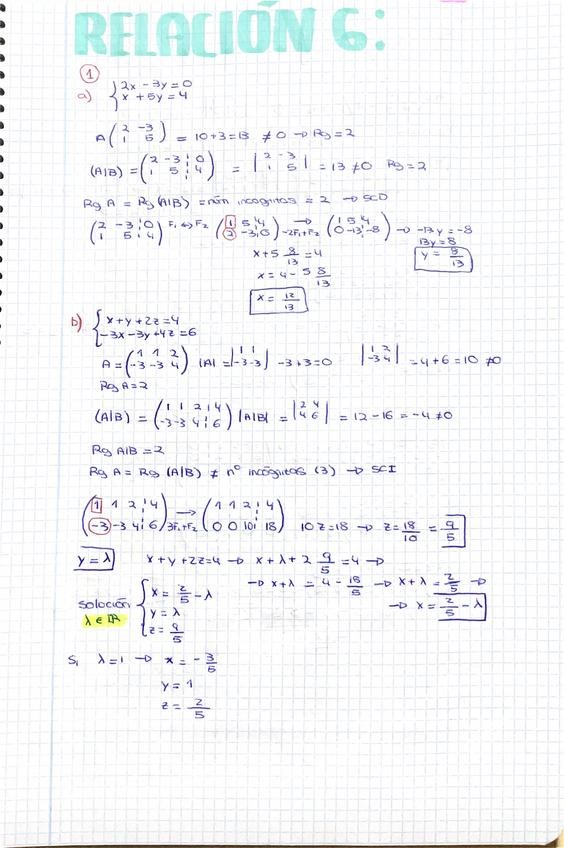 RELACIÓN 6:
1
a) {2x - 3y = 0
x + 5y = 4
A (2 -3
1 5) = 10+3=13 ≠0 → Rg=2
(A|B) = (2 -3 ¦ 0
1 5 ¦ 4) = |2 -3
1 5| = 13 ≠0 Rg=2
Rg A = Rg (A|B) = núm incógnitas = 2 → SCD
(2 -3 ¦ 0
1 5 ¦ 4) F1 ↔ F2 (1 5 ¦ 4
2 -3 ¦ 0) -2F1+F2 → (1 5 4
0 -13 ¦ -8) → -13y = -8
13y = 8
y = 8/13
x + 5 8/13 = 4
x = 4 - 5 8/13
x = 12/13
b) {x + y + 2z = 4
-3x - 3y + 4z = 6
A = (1 1 2
-3 -3 4) |A| = |1 1
-3 -3| -3+3=0 |1 2
-3 4| = 4+6 = 10 ≠0
Rg A = 2
(A|B) = (1 1 2 ¦ 4
-3 -3 4 ¦ 6) |A|B| = |2 4
4 6| = 12 - 16 = -4 ≠0
Rg A|B = 2
Rg A = Rg (A|B) ≠ nº incógnitas (3) → SCI
(1 1 2 ¦ 4
-3 -3 4 ¦ 6) 3F1+F2 → (1 1 2 ¦ 4
0 0 10 ¦ 18) 10z = 18 → z = 18/10 = 9/5
y = λ x + y + 2z = 4 → x + λ + 2 9/5 = 4 →
→ x + λ = 4 - 18/5 → x + λ = 2/5 →
→ x = 2/5 - λ
Solución {x = 2/5 - λ
λ ∈ ℝ y = λ
z = 9/5
Si λ = 1 → x = - 3/5
y = 1
z = 2/5